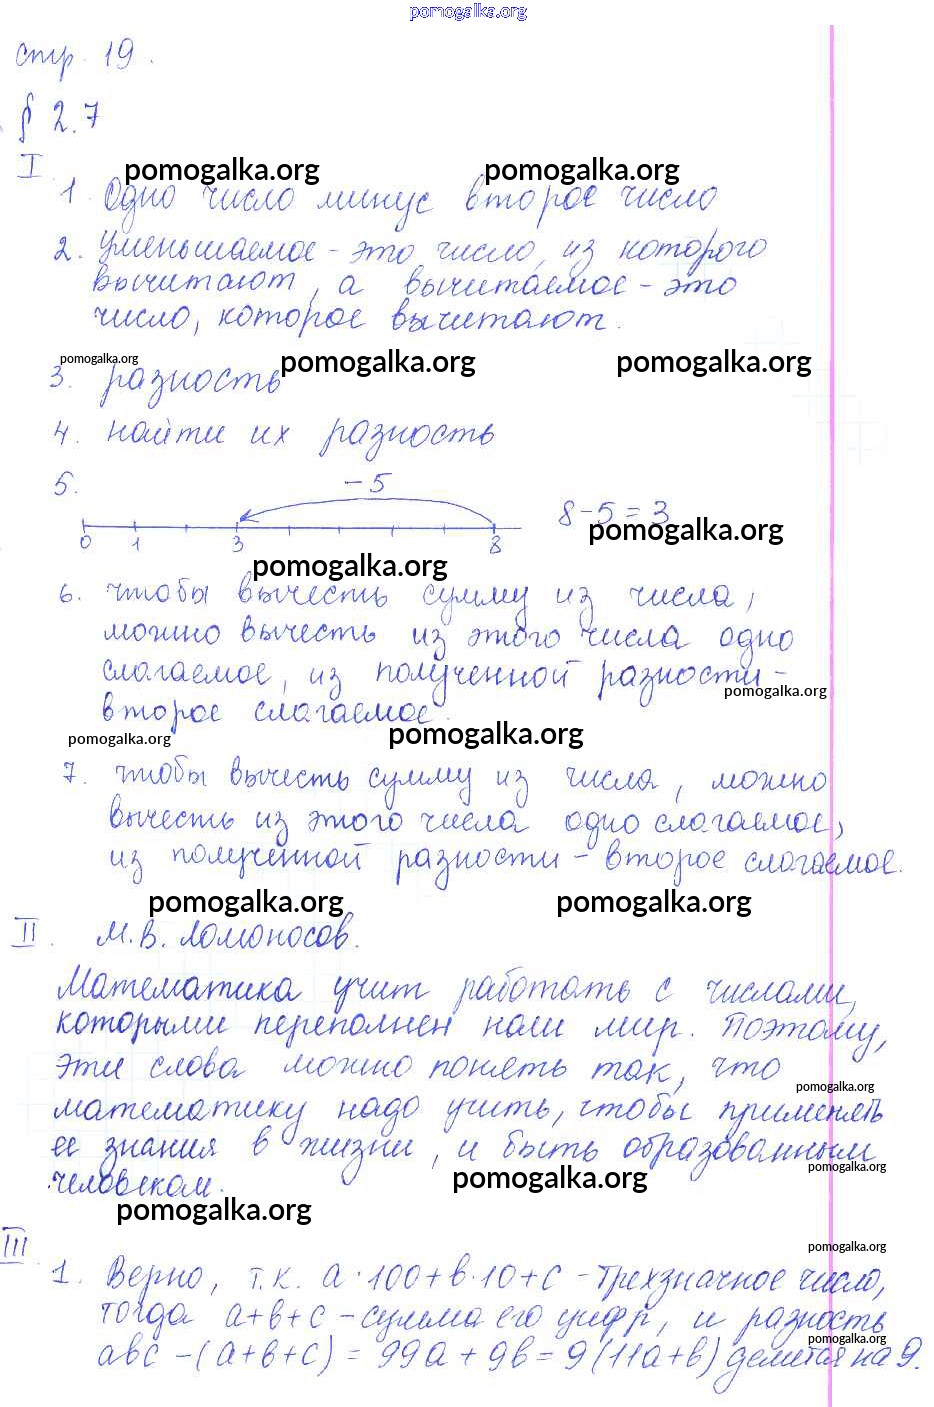 pomogalka.org
стр. 19.
§ 2.7
I
pomogalka.org pomogalka.org
1. Одно число минус второе число
2. Уменьшаемое - это число, из которого
вычитают, а вычитаемое - это
число, которое вычитают.
pomogalka.org pomogalka.org pomogalka.org
3. разность
4. найти их разность
5. -5
8-5=3
pomogalka.org
0 1 3 8
pomogalka.org
6. чтобы вычесть сумму из числа,
можно вычесть из этого числа одно
слагаемое, из полученной разности -
pomogalka.org
второе слагаемое.
pomogalka.org pomogalka.org
7. чтобы вычесть сумму из числа, можно
вычесть из этого числа одно слагаемое,
из полученной разности - второе слагаемое.
pomogalka.org pomogalka.org
II. М.В. Ломоносов.
Математика учит работать с числами,
которыми переполнен наш мир. Поэтому,
эти слова можно понять так, что
pomogalka.org
математику надо учить, чтобы применять
ее знания в жизни, и быть образованным
pomogalka.org
человеком.
pomogalka.org
pomogalka.org
III
pomogalka.org
1. Верно, т.к. a·100+b·10+c - трехзначное число,
тогда a+b+c - сумма его цифр, и разность
pomogalka.org
abc - (a+b+c) = 99a + 9b = 9(11a+b) делится на 9.